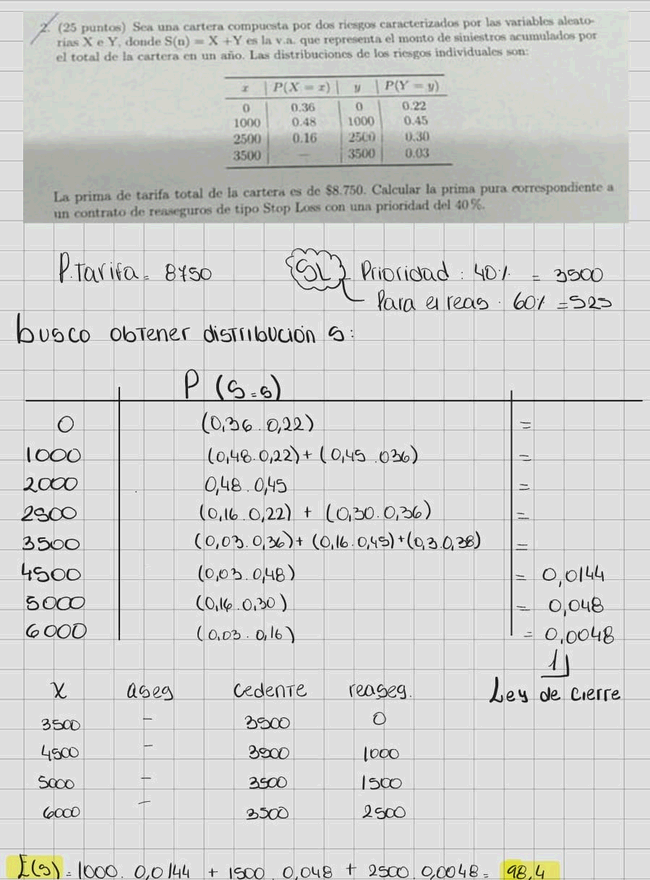 2. (25 puntos) Sea una cartera compuesta por dos riesgos caracterizados por las variables aleato-
rias X e Y, donde S(n) = X +Y es la v.a. que representa el monto de siniestros acumulados por
el total de la cartera en un año. Las distribuciones de los riesgos individuales son:
x P(X = x) y P(Y = y)
0 0.36 0 0.22
1000 0.48 1000 0.45
2500 0.16 2500 0.30
3500 — 3500 0.03
La prima de tarifa total de la cartera es de $8.750. Calcular la prima pura correspondiente a
un contrato de reaseguros de tipo Stop Loss con una prioridad del 40%.
P.Tarifa = 8750 SL Prioridad : 40% = 3500
Para el reas. 60% = 525
busco obtener distribución S:
P (S=s)
0 (0,36 . 0,22) =
1000 (0,48 . 0,22) + (0,45 . 036) =
2000 0,48 . 0,45 =
2500 (0,16 . 0,22) + (0,30 . 0,36) =
3500 (0,03 . 0,36) + (0,16 . 0,45) + (0,3 . 0,38) =
4500 (0,03 . 0,48) = 0,0144
5000 (0,16 . 0,30) = 0,048
6000 (0,03 . 0,16) = 0,0048
1
X aseg cedente reaseg. Ley de cierre
3500 — 3500 0
4500 — 3500 1000
5000 — 3500 1500
6000 — 3500 2500
E(s) = 1000 . 0,0144 + 1500 . 0,048 + 2500 . 0,0048 = 98,4